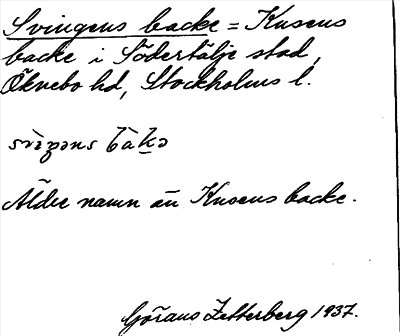 Svingens backe = Kusens
backe i Södertälje stad,
Öknebo hd, Stockholms l.
Äldre namn än Kusens backe.
Görans Zetterberg 1937.